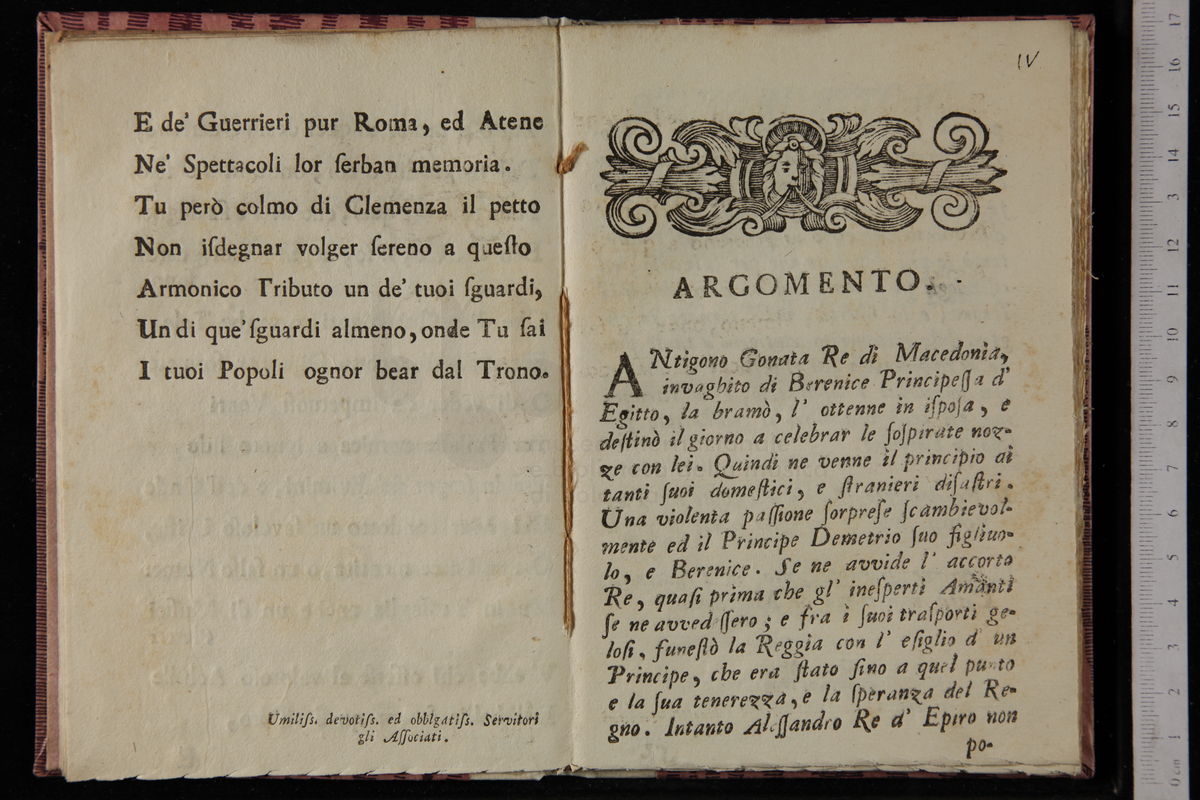 E de' Guerrieri pur Roma, ed Atene
Ne' Spettacoli lor ſerban memoria.
Tu però colmo di Clemenza il petto
Non iſdegnar volger ſereno a queſto
Armonico Tributo un de' tuoi ſguardi,
Un di que' ſguardi almeno, onde Tu ſai
I tuoi Popoli ognor bear dal Trono.
Umiliſs. devotiſs. ed obblgatiſs. Servitori
gli Aſſociati.
IV
ARGOMENTO.
ANtigono Gonata Re di Macedonia,
invaghito di Berenice Principeſſa d'
Egitto, la bramò, l' ottenne in iſpoſa, e
deſtinò il giorno a celebrar le ſoſpirate noz-
ze con lei. Quindi ne venne il principio di
tanti ſuoi domeſtici, e ſtranieri diſaſtri.
Una violenta paſſione ſorpreſe ſcambievol-
mente ed il Principe Demetrio ſuo figliuo-
lo, e Berenice. Se ne avvide l' accorto
Re, quaſi prima che gl' ineſperti Amanti
ſe ne avvedeſſero; e fra i ſuoi traſporti ge-
loſi, funeſtò la Reggia con l' eſiglio d' un
Principe, che era ſtato ſino a quel punto
e la ſua tenerezza, e la ſperanza del Re-
gno. Intanto Aleſſandro Re d' Epiro non
po-
0 cm 1 2 3 4 5 6 7 8 9 10 11 12 13 14 15 16 17